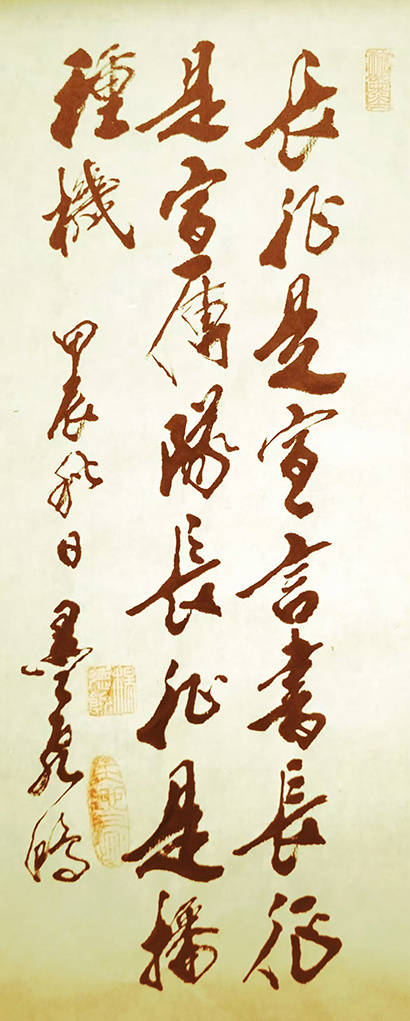 長征是宣言書長征
是宣傳隊長征是播
種機
甲辰秋日